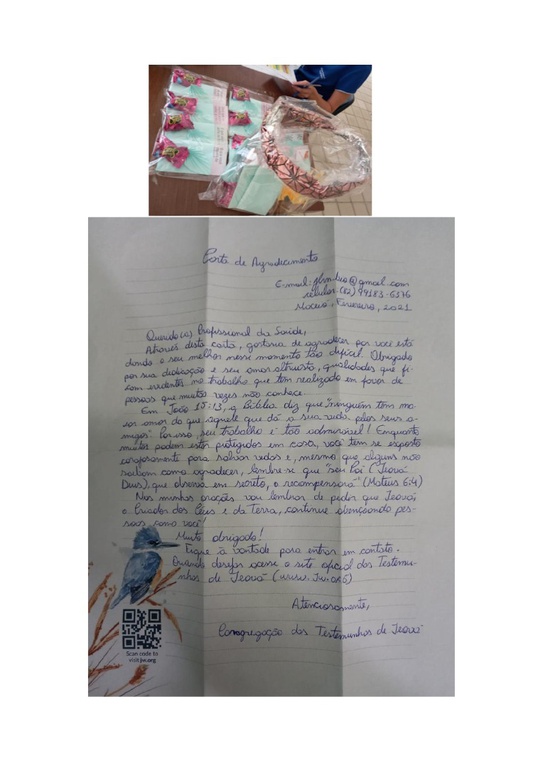 Carta de Agradecimento
E-mail:
celular: (82) 99183-6176
Maceió, Fevereiro, 2021
Querido(a) Profissional da Saúde,
Através desta carta, gostaria de agradecer por você está
dando o seu melhor nesse momento tão difícil. Obrigado
por sua dedicação e seu amor altruísta, qualidades que fi-
cam evidentes no trabalho que tem realizado em favor de
pessoas que muitas vezes não conhece.
Em João 15:13, a Bíblia diz que "ninguém tem ma-
ior amor do que aquele que dá a sua vida pelos seus a-
migos". Por isso, seu trabalho é tão admirável! Enquanto
muitos podem estar protegidos em casa, você tem se exposto
corajosamente para salvar vidas e, mesmo que alguns não
saibam como agradecer, lembre-se que "seu Pai (Jeová
Deus), que observa em secreto, o recompensará" (Mateus 6:4)
Nas minhas orações vou lembrar de pedir que Jeová,
o Criador dos Céus e da Terra, continue abençoando pes-
soas como você!
Muito obrigado!
Fique à vontade para entrar em contato.
Quando desejar acesse o site oficial das Testemu-
nhas de Jeová (www.jw.org)
Atenciosamente,
Congregação das Testemunhas de Jeová
Scan code to
visit jw.org